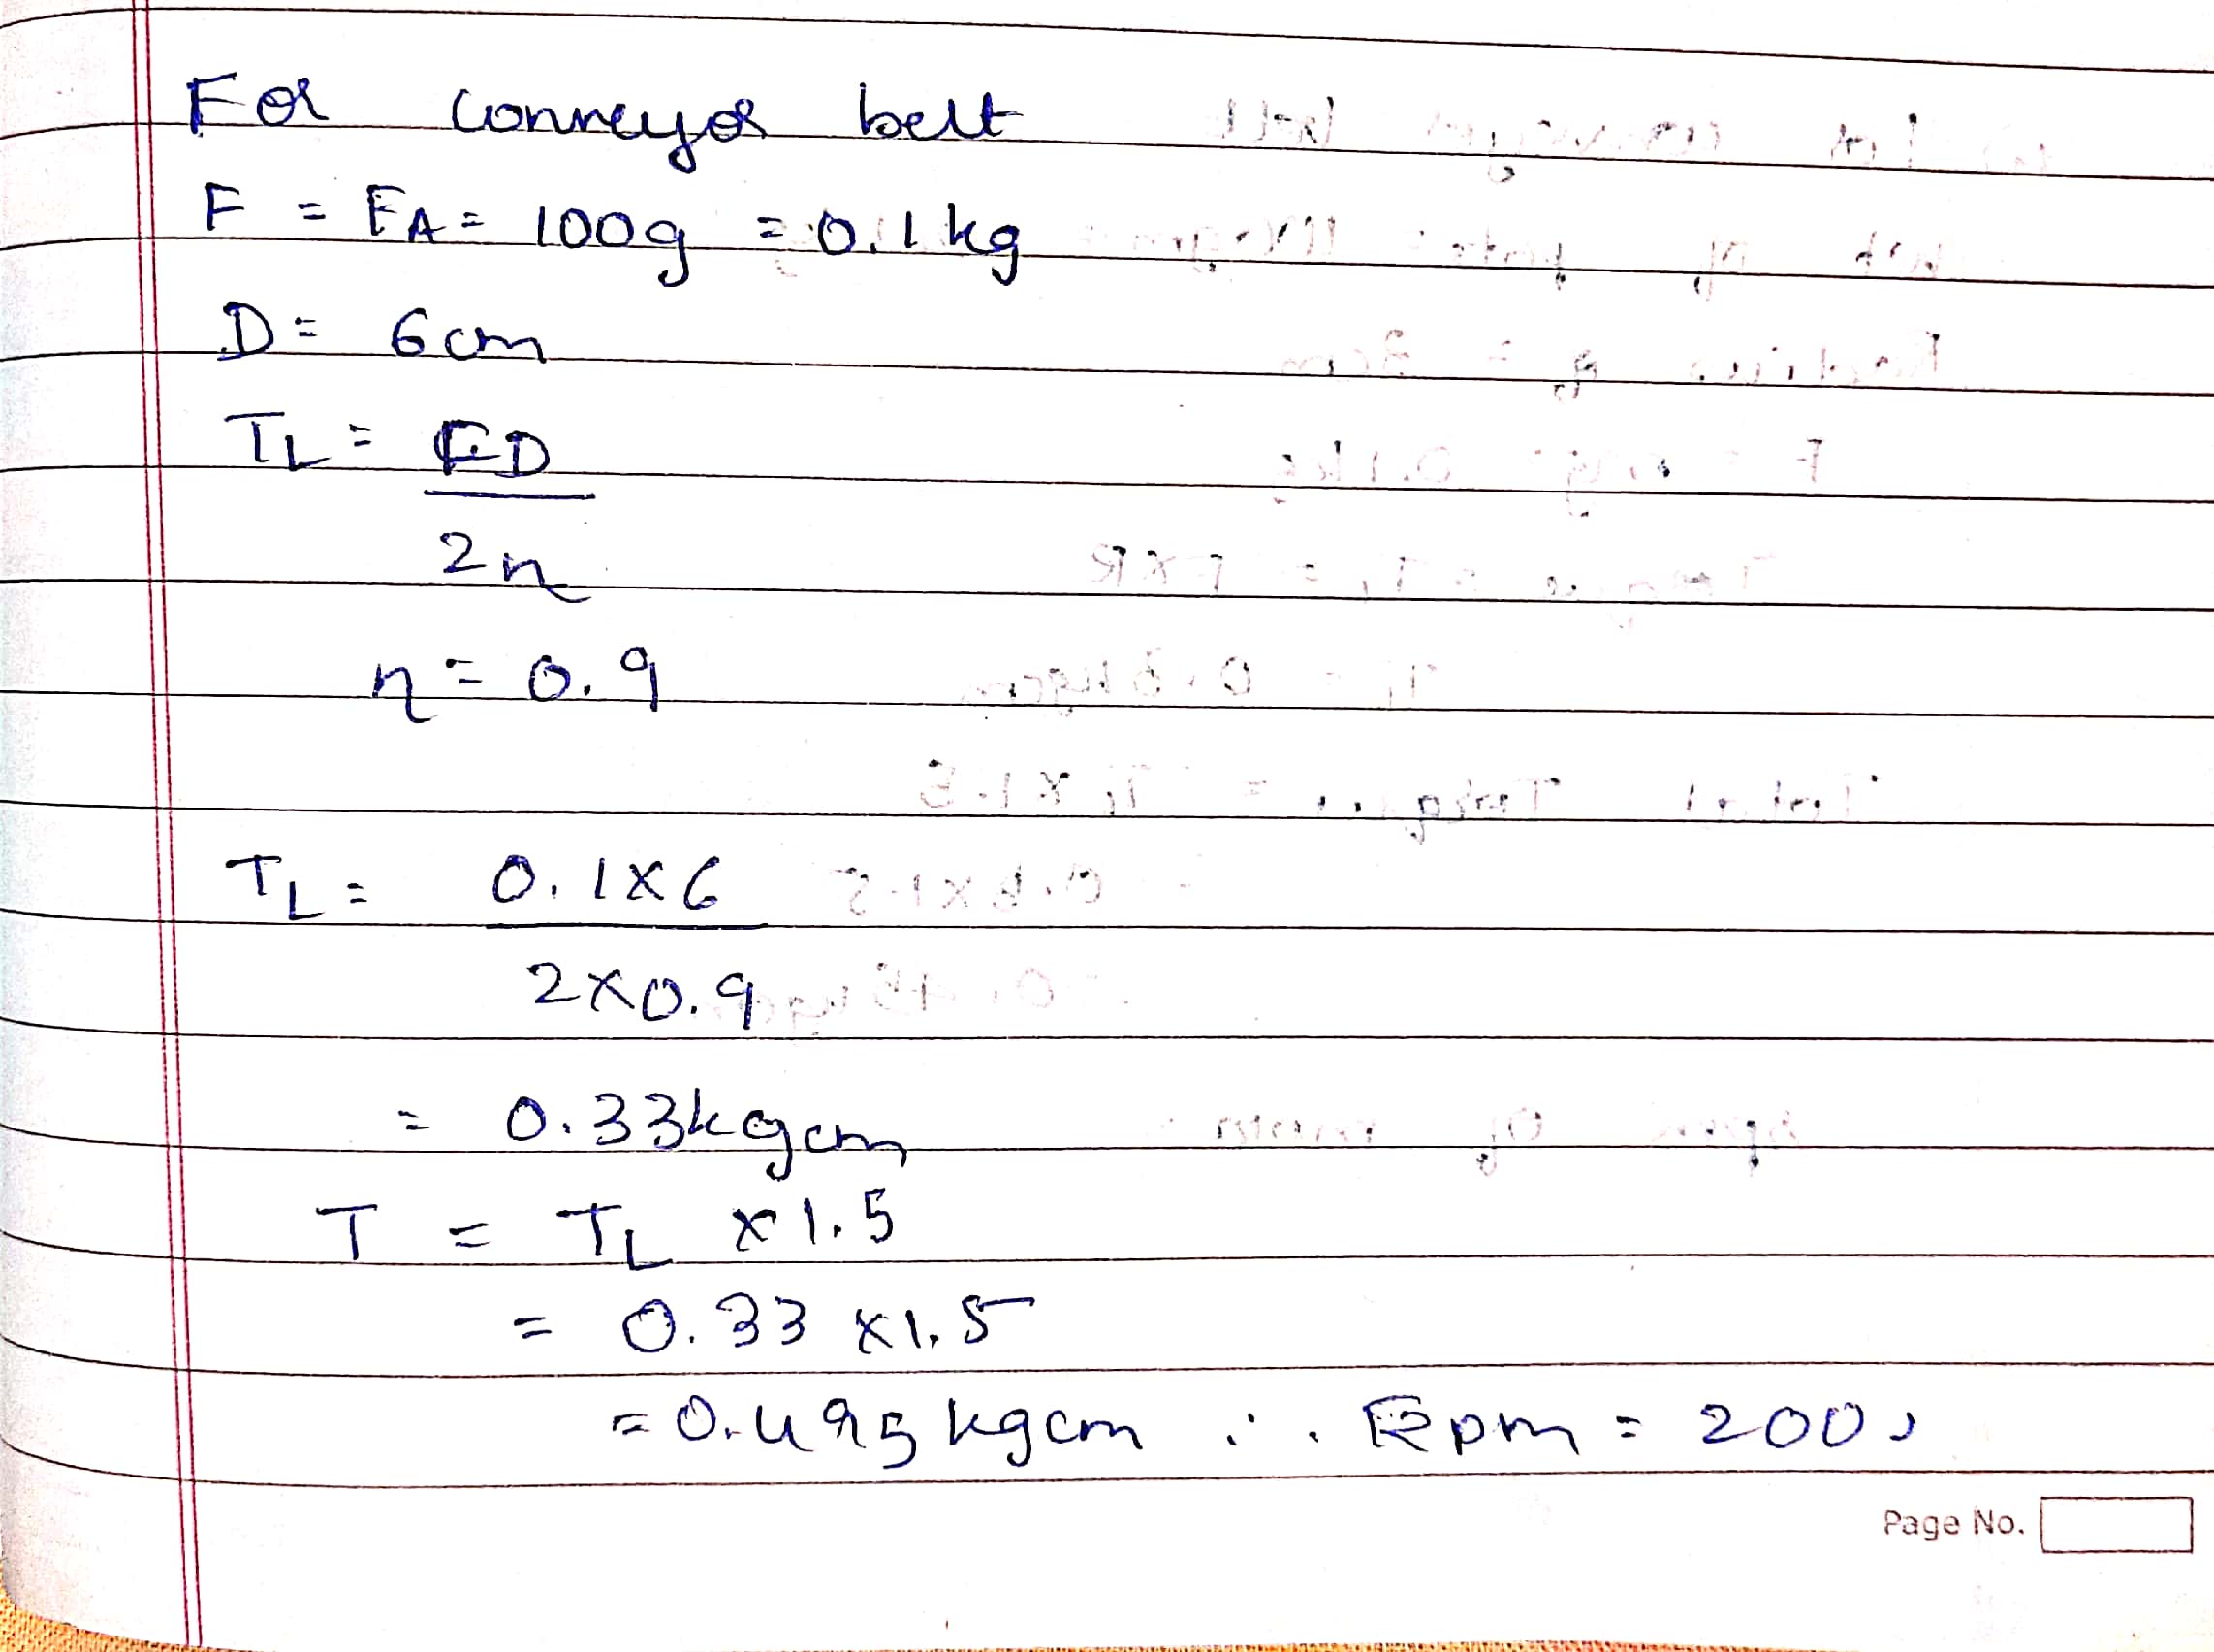 For conveyor belt
F = FA = 100g = 0.1 kg
D = 6cm
TL = F.D
2η
η = 0.9
TL = 0.1×6
2×0.9
= 0.33kgcm
T = TL ×1.5
= 0.33 ×1.5
= 0.495 kgcm ∴ Rpm = 200
Page No.